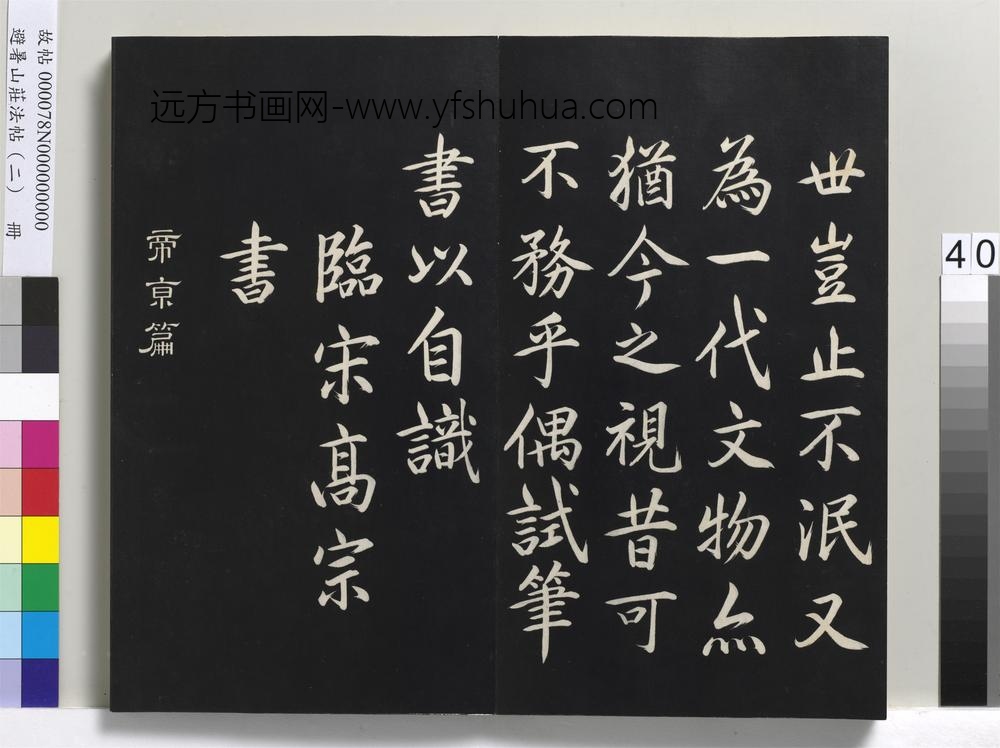 世豈止不泯又
為一代文物亦
猶今之視昔可
不務乎偶試筆
書以自識
臨宋高宗
書
帝京篇
远方书画网-www.yfshuhua.com
故帖 000078N000000000
避暑山莊法帖(二) 冊
40